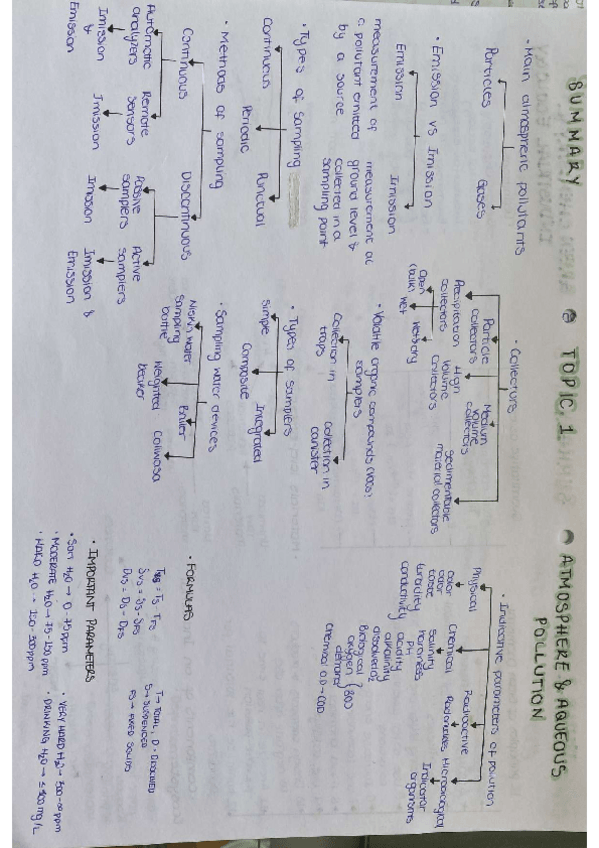 SUMMARY TOPIC 1 ATMOSPHERE & AQUEOUS
POLLUTION
• Main atmospheric pollutants
Particles Gases
• Emission vs Imission
Emission Imission
measurement of
pollutant emitted
by a source
measurement at
ground level &
collected in a
sampling point
• Types of sampling
Continuous Periodic Punctual
• Methods of sampling
Continuous Discontinuous
Automatic
analyzers
Remote
Sensors
Passive
samplers
Active
samplers
Imission
&
Emission
Imission
Imission
Imission &
Emission
• Collectors
Particle
collectors
Medium
volume
collectors
Precipitation
collectors
High
volume
collectors
Sedimentable
material collectors
Open
(bulk)
wet
• Volatile organic compounds (VOCs)
samplers
Collection in
traps
Collection in
canister
• Types of samplers
Simple Composite Integrated
• Sampling water devices
Niskin water
sampling
bottle
Weighted
beaker
Bailer
Coliwasa
• Indicative parameters of pollution
Physical Chemical Radioactive Microbiological
color
odor
taste
turbidity
conductivity
Salinity
hardness
pH
acidity
alkalinity
dissolved O2
Biological
oxygen
demand
BOD
chemical O.D → COD
Indicator
organisms
• FORMULAS
TVS = TS - TFS
SVS = SS - SFS
DVS = DS - DFS
T → TOTAL, D → DISSOLVED
S → SUSPENDED
FS → FIXED SOLIDS
• IMPORTANT PARAMETERS
• Soft H2O → 0-75 ppm
• MODERATE H2O → 75-150 ppm
• HARD H2O → 150-300 ppm
• VERY HARD H2O → 300-∞ ppm
• DRINKING H2O → ≤ 500 mg/L